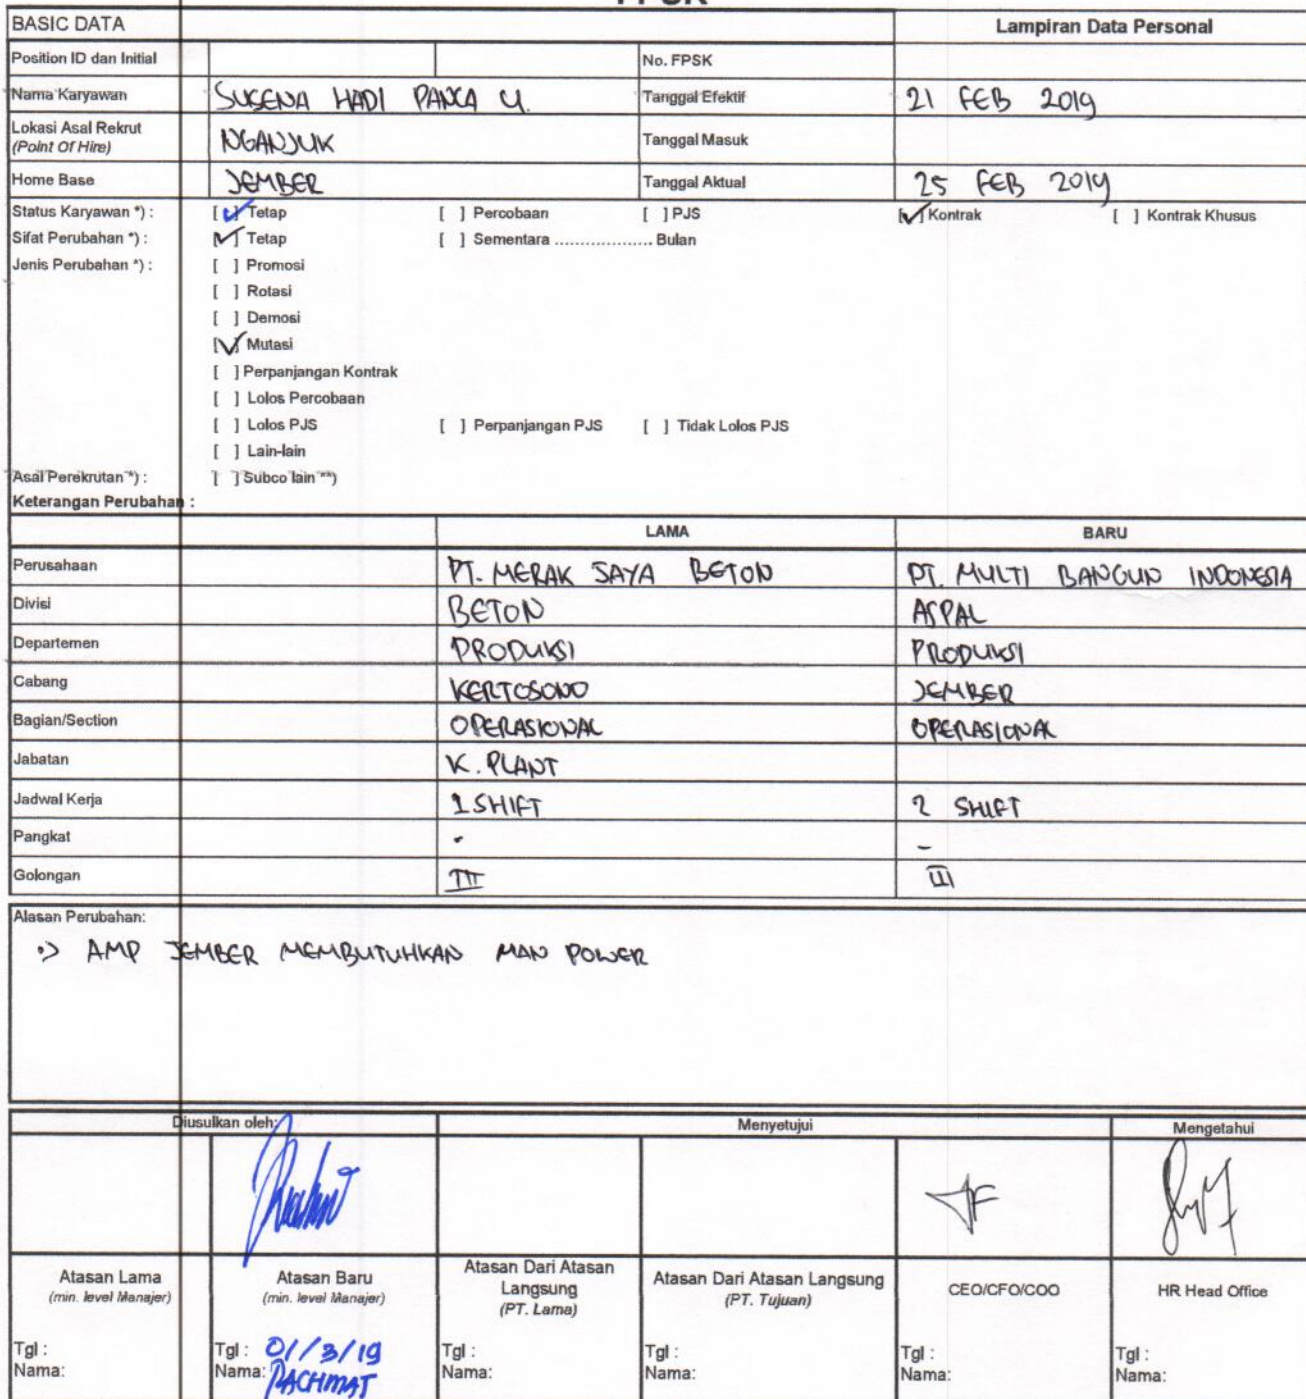 BASIC DATA Lampiran Data Personal
Position ID dan Initial No. FPSK
Nama Karyawan SUSENA HADI PANCA U. Tanggal Efektif 21 FEB 2019
Lokasi Asal Rekrut NGANJUK Tanggal Masuk
(Point Of Hire)
Home Base JEMBER Tanggal Aktual 25 FEB 2019
Status Karyawan *) : [✓] Tetap [ ] Percobaan [ ] PJS [✓] Kontrak [ ] Kontrak Khusus
Sifat Perubahan *) : [✓] Tetap [ ] Sementara ................... Bulan
Jenis Perubahan *) : [ ] Promosi
[ ] Rotasi
[ ] Demosi
[✓] Mutasi
[ ] Perpanjangan Kontrak
[ ] Lolos Percobaan
[ ] Lolos PJS [ ] Perpanjangan PJS [ ] Tidak Lolos PJS
[ ] Lain-lain
Asal Perekrutan *) : [ ] Subco lain **)
Keterangan Perubahan :
LAMA BARU
Perusahaan PT. MERAK JAYA BETON PT. MULTI BANGUN INDONESIA
Divisi BETON ASPAL
Departemen PRODUKSI PRODUKSI
Cabang KERTOSONO JEMBER
Bagian/Section OPERASIONAL OPERASIONAL
Jabatan K. PLANT
Jadwal Kerja 1 SHIFT 2 SHIFT
Pangkat - -
Golongan III III
Alasan Perubahan:
•> AMP JEMBER MEMBUTUHKAN MAN POWER
Diusulkan oleh: Menyetujui Mengetahui
Atasan Lama Atasan Baru Atasan Dari Atasan Langsung Atasan Dari Atasan Langsung CEO/CFO/COO HR Head Office
(min. level Manajer) (min. level Manajer) (PT. Lama) (PT. Tujuan)
Tgl : Tgl : 01/3/19 Tgl : Tgl : Tgl : Tgl :
Nama: Nama: RACHMAT Nama: Nama: Nama: Nama: